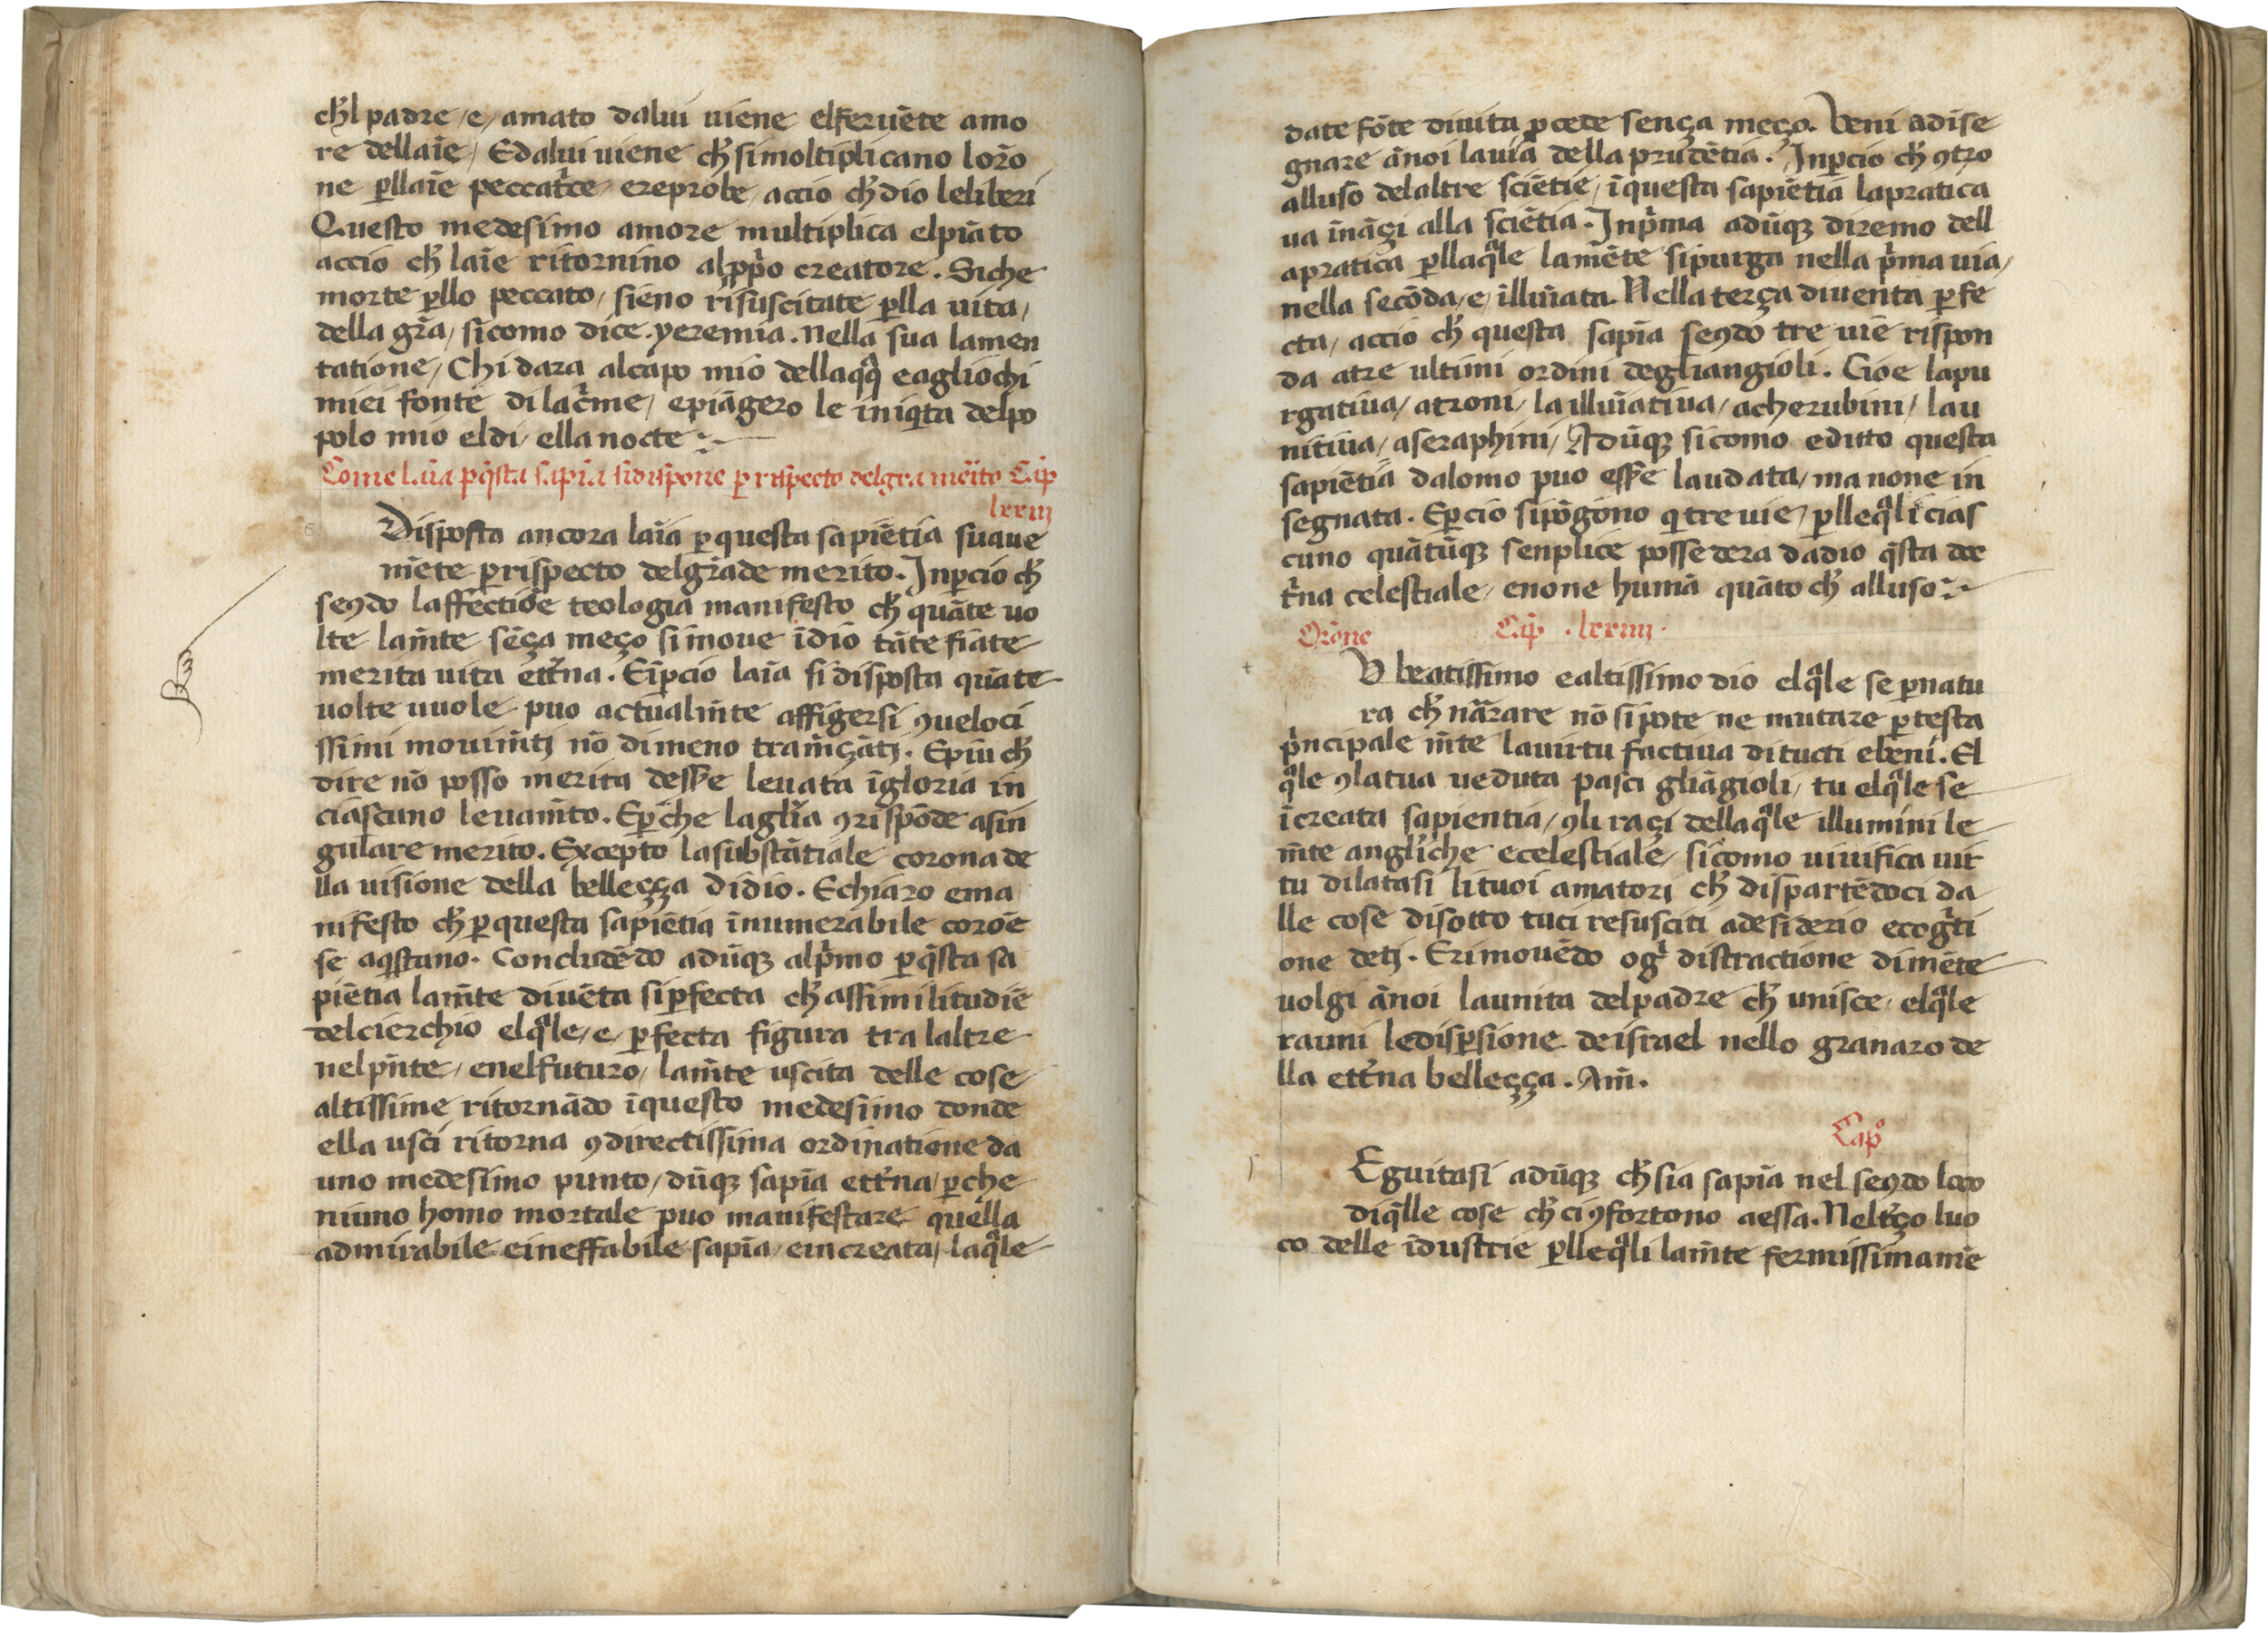 ch̄l padre/e/amato dalui uiene elferuēte amo
re dellaīe/ Edalui uiene ch̄ simoltiplicano loro᷉
ne ꝑllaīe peccatr̄ce ereprobe/ accio ch̄ dio leliberi
Questo medesimo amore multiplica elpiāto
accio ch̄ laīe ritornino alꝓp̄o creatore. Siche
morte ꝑllo peccato/ sieno risuscitate ꝑlla uita/
della gr̄a/ sicomo dice. yeremia. Nella sua lamen
tatione/ Chi dara alcapo mio dellaq̄q̄ eagliochi
miei fonte dilac̄me/ epiāgero le iniq̄ta delpo
polo mio eldi/ ella nocte
Come laīa ꝑq̄sta sapīa sidispone ꝑ rispecto delgra mēito Cap̄
lxxiij
Disposta ancora laīa ꝑ questa sapiētia suaue
m̄ete ꝑrispecto delgrāde merito. Inꝑcio ch̄
seꝯdo laffectiōe teologia manifesto ch̄ quāte uo
lte lam̄te sēça meço simoue īdio tāte fiate
merita uita ett̄na. Eīꝑcio laīa si disposta quāte
uolte uuole puo actualm̄te affigersi ꝯueloci
ssimi mouim̄tj nō dimeno tram̄çātj. Epiu ch̄
dire nō posso merita dess̄e leuata īgloria in
ciascuno leuam̄to. Eꝑche lagl̄ia ꝯrispōde asin
gulare merito. Excepto lasubstātiale corona de
lla uisione della belleçça didio. Echiaro ema
nifesto ch̄ ꝑ questa sapiētia īnumerabile coroē
se aq̄stano. Concludēdo adūqꝫ alp̄mo ꝑq̄sta sa
piētia lam̄te diuēta siꝑfecta ch̄ assimilitudīe
delcierchio elq̄le/e/ꝑfecta figura tra laltre
nelpn̄te/ enelfuturo/ lam̄te uscita delle cose
altissime ritornādo īquesto medesimo donde
ella usci ritorna ꝯdirectissima ordinatione da
uno medesimo punto/ dūqꝫ sapīa ett̄na/ ꝑche
niuno homo mortale puo manifestare quella
admirabile eineffabile sapīa/ eincreata/ laq̄le
date fōte diuita ꝓcede sença meço. Veni adise
gnare ānoi lauia della prudētia. Inꝑcio ch̄ ꝯtro
alluso delaltre sciētie/ īquesta sapiētia lapratica
ua īnāçi alla sciētia. Inp̄ma adūqꝫ diremo dell
apratica ꝑllaq̄le lamēte sipurga nella p̄ma uia/
nella secōda/e/ illuīata. Nella terça diuenta ꝑfe
cta/ accio ch̄ questa sapīa seꝯdo tre uie rispon
da atre ultimi ordini degliangioli. Cioe lapu
rgatiua/ atroni/ la illuīatiua/ acherubini/ lau
nitiua/ aseraphini/ Adūqꝫ sicomo editto questa
sapiētia dalomo puo ess̄e laudata/ ma none in
segnata. Eꝑcio sipōgono q̄ tre uie/ ꝑlleq̄li cias
cuno quātūqꝫ senplice possedera dadio q̄sta doc
tr̄na celestiale/ enone humā quāto ch̄ alluso
Orōne Cap̄ .lxxiiij.
O beatissimo ealtissimo dio elq̄le se ꝑnatu
ra ch̄ nārare nō si pote ne mutare ꝑ testa
p̄ncipale m̄te lauirtu factiua di tucti ebeni. El
q̄le ꝯlatua ueduta pasci gliāgioli/ tu elq̄le se
īcreata sapientia/ ꝯli raçi dellaq̄le illumini le
m̄te angl̄iche ecelestiale/ sicomo uiuifica uir
tu dilatasi li tuoi amatori ch̄ dispartēdoci da
lle cose disotto tuci resusciti adesiderio ecogn̄ti
one detj. Erimouēdo oḡ distractione dimēte
uolgi ānoi launita delpadre ch̄ unisce/ elq̄le
rauni ledispersione deisrael nello granaro de
lla ett̄na belleçça. Am̄.
Cap̊
Eguitasi adūqꝫ ch̄ sia sapīa nel seꝯdo loco
diq̄lle cose ch̄ ci ꝯfortono aessa. Nelt̄ço luo
co delle īdustrie ꝑlleq̄li lam̄te fermissimamē